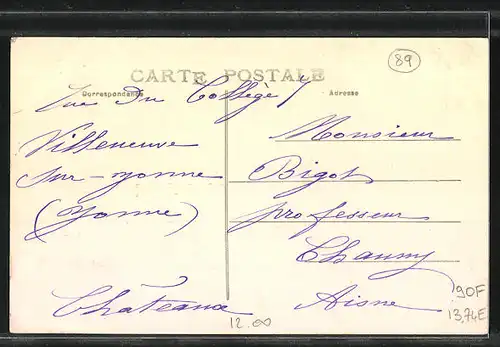 89
CARTE POSTALE
Correspondance
Adresse
Rue Du Collège 7
Villeneuve
sur-yonne
(Yonne)
Châteaux
Monsieur
Bigot
professeur
Chauny
Aisne
12.00
90F
13,74E